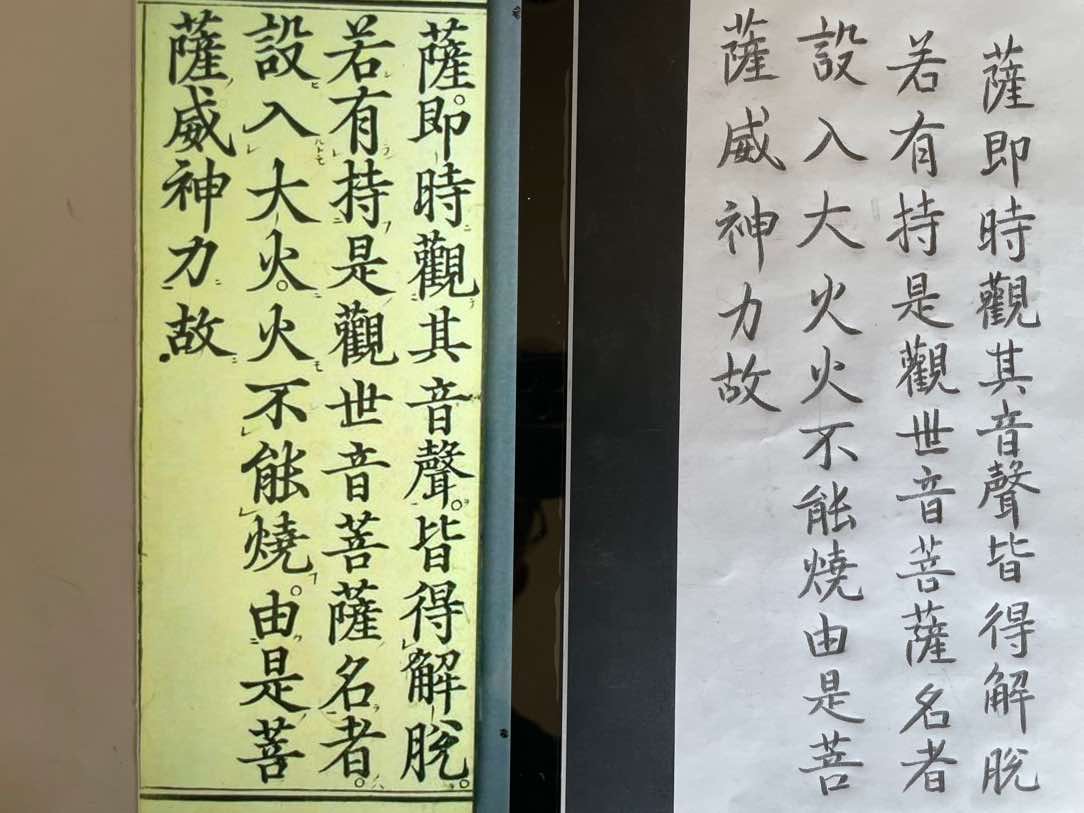 薩。即時觀其音聲。皆得解脫。
若有持是觀世音菩薩名者。
設入大火。火不能燒。由是菩
薩。威神力故
薩即時觀其音聲皆得解脫
若有持是觀世音菩薩名者
設入大火火不能燒由是菩
薩威神力故